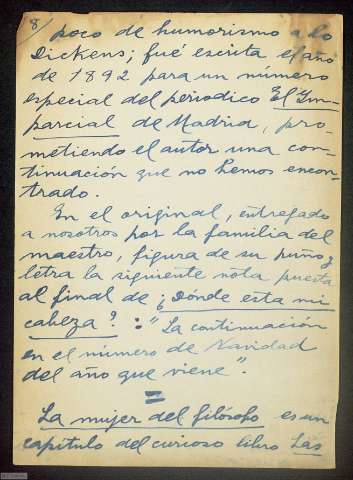 8/ poco de humorismo a lo
Dickens; fué escrita el año
de 1892 para un número
especial del periodico El Im-
parcial de Madrid, pro-
metiendo el autor una con-
tinuación que no hemos encon-
trado.
En el original, entregado
a nosotros por la familia del
maestro, figura de su puño y
letra la siguiente nota puesta
al final de ¿Dónde esta mi
cabeza?: "La continuación
en el número de Navidad
del año que viene".
=
La mujer del filósofo es un
capitulo del curioso libro Las